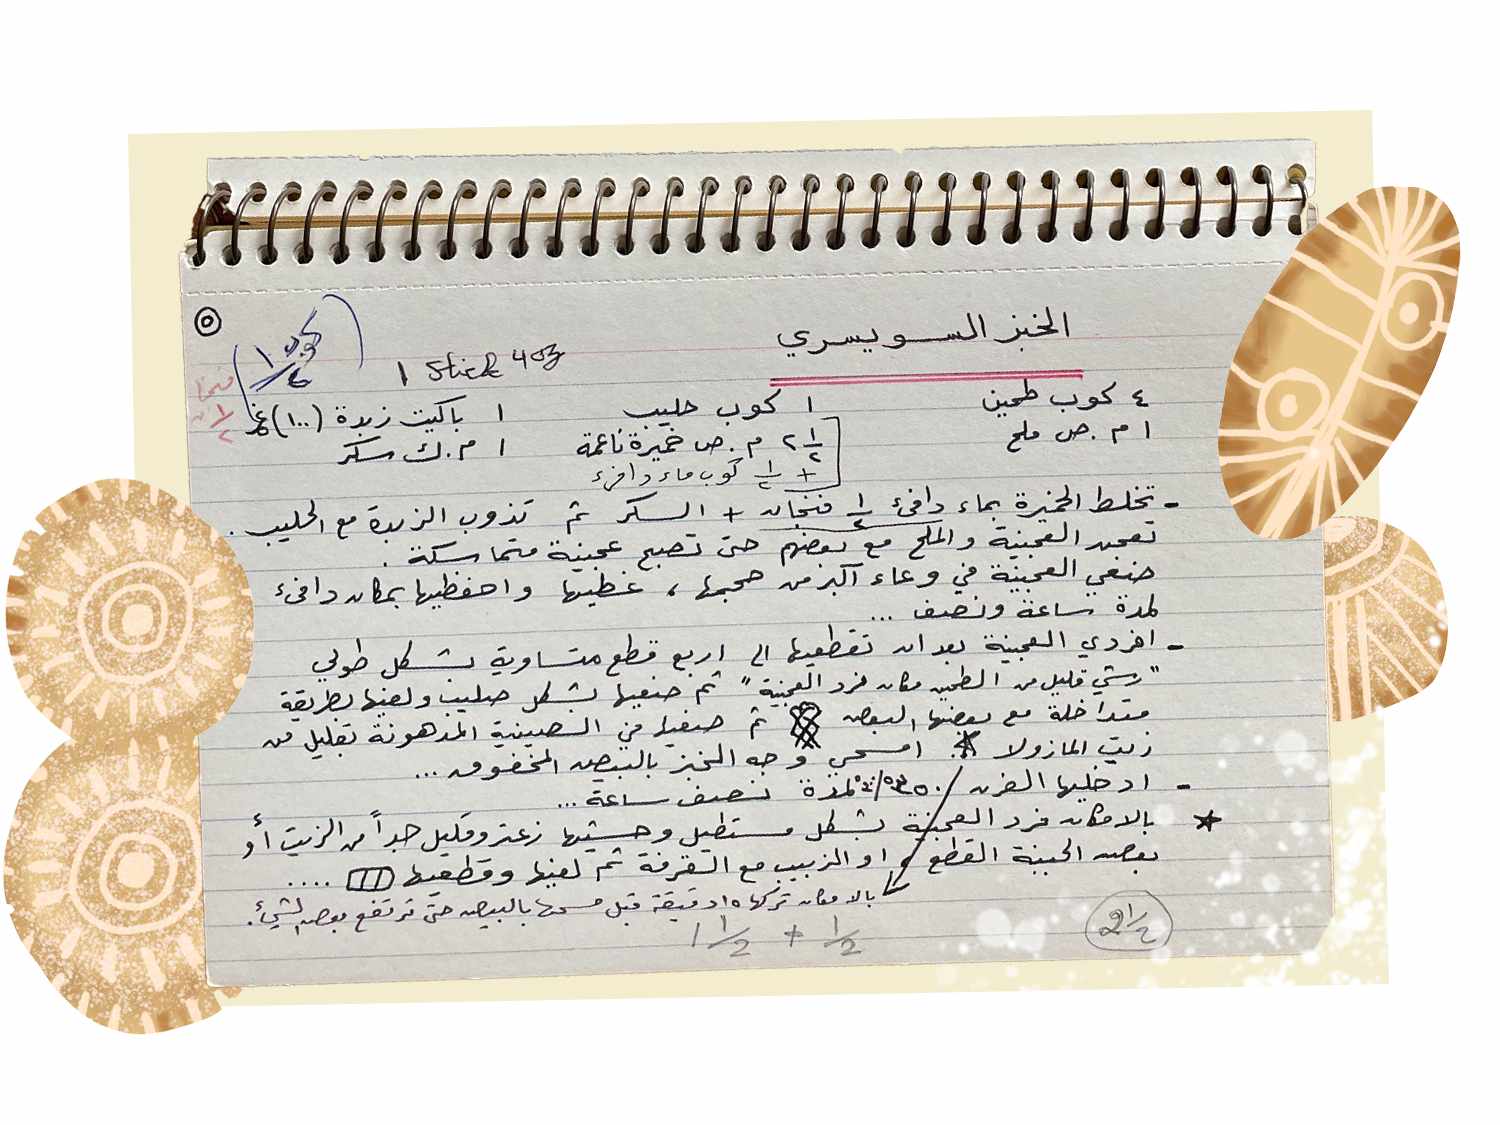 الخبز السويسري
كوب ١/٢
فنجان ١/٢
1 Stick 4oz
٤ كوب طحين ١ كوب حليب ١ باكيت زبدة (١٠٠) غم
١ م.ص ملح ٢ ١/٢ م.ص خميرة ناعمة ١ م.ك سكر
+ ١/٢ كوب ماء دافئ
- تخلط الخميرة بماء دافئ ١/٢ فنجان + السكر ثم تذوب الزبدة مع الحليب.
تعجن العجينة والملح مع بعضهم حتى تصبح عجينة متماسكة.
ضعي العجينة في وعاء أكبر من حجمها، غطيها واحفظيها بمكان دافئ
لمدة ساعة ونصف ...
- افردي العجينة بعد ان تقطعيها الى اربع قطع متساوية بشكل طولي
"رشي قليل من الطحين مكان فرد العجينة" ثم ضعيها بشكل صليب ولفيها بطريقة
متداخلة مع بعضها البعض ثم ضعيها في الصينية المدهونة بقليل من
زيت المازولا. امسحي وجه الخبز بالبيض المخفوق ...
- ادخليها الفرن ٣٥٠ لمدة نصف ساعة ...
* بالامكان فرد العجينة بشكل مستطيل وحشيها زعتر وقليل جداً من الزيت أو
بعض الجبنة القطع، او الزبيب مع القرفة ثم لفيها وقطعيها ....
بالامكان تركها ١٥ دقيقة قبل مسحها بالبيض حتى ترتفع بعض الشيء.
1 1/2 + 1/2
2 1/2